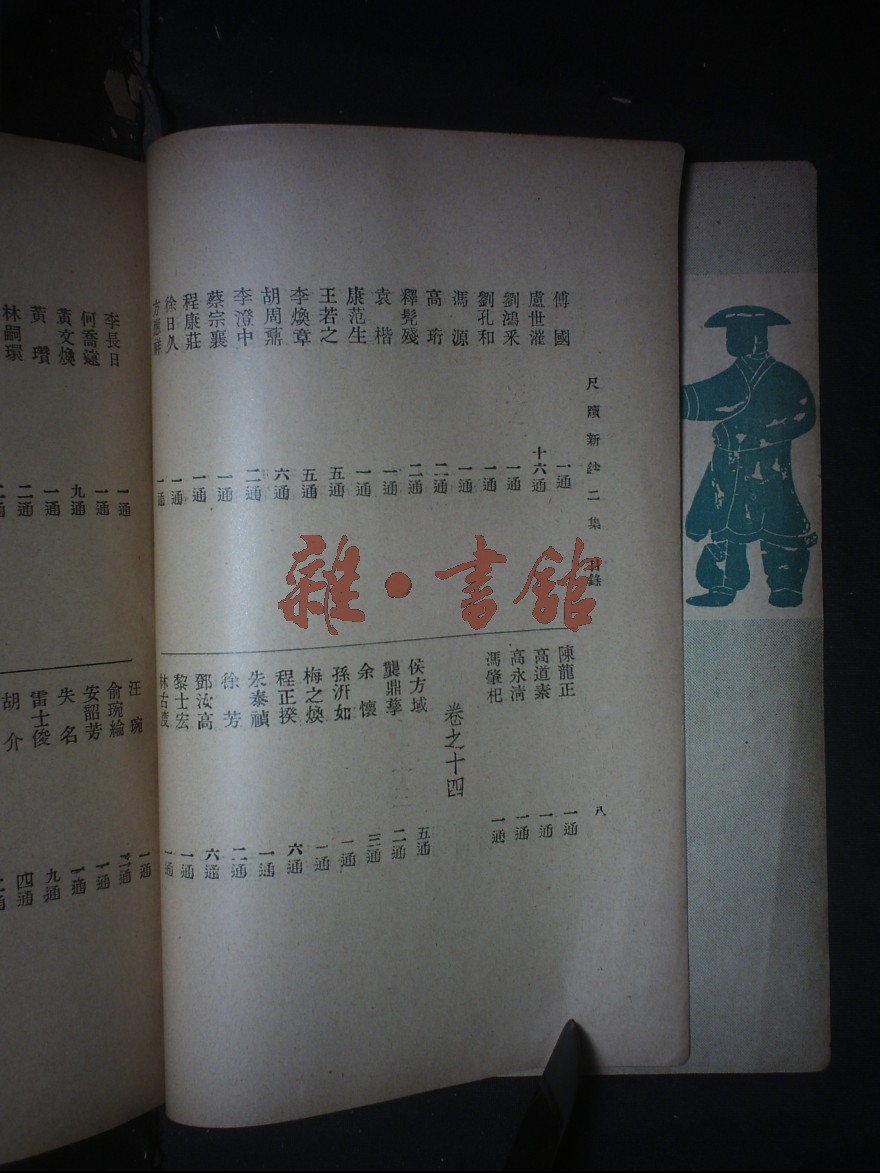 尺牘新鈔二集 目錄
八
傅國 一通
盧世㴶 十六通
劉鴻采 一通
劉孔和 一通
馮源 一通
高珩 二通
釋髡殘 二通
袁楷 一通
康范生 一通
王若之 五通
李煥章 五通
胡周鼒 六通
李澄中 二通
蔡宗襄 一通
程康莊 一通
徐日久 一通
一通
陳龍正 一通
高道素 一通
高永清 一通
馮肇杞 一通
卷之十四
侯方域 五通
龔鼎孳 二通
余懷 三通
孫汧如 一通
梅之煥 一通
程正揆 六通
朱泰禎 一通
徐芳 二通
鄧汝高 六通
黎士宏 一通
林古度 一通
李長日 一通
何喬遠 一通
黃文煥 九通
黃瓚 二通
林嗣環
汪琬 一通
俞琬綸 二通
安韶芳 一通
失名 一通
雷士俊 九通
胡介 四通
雜·書館